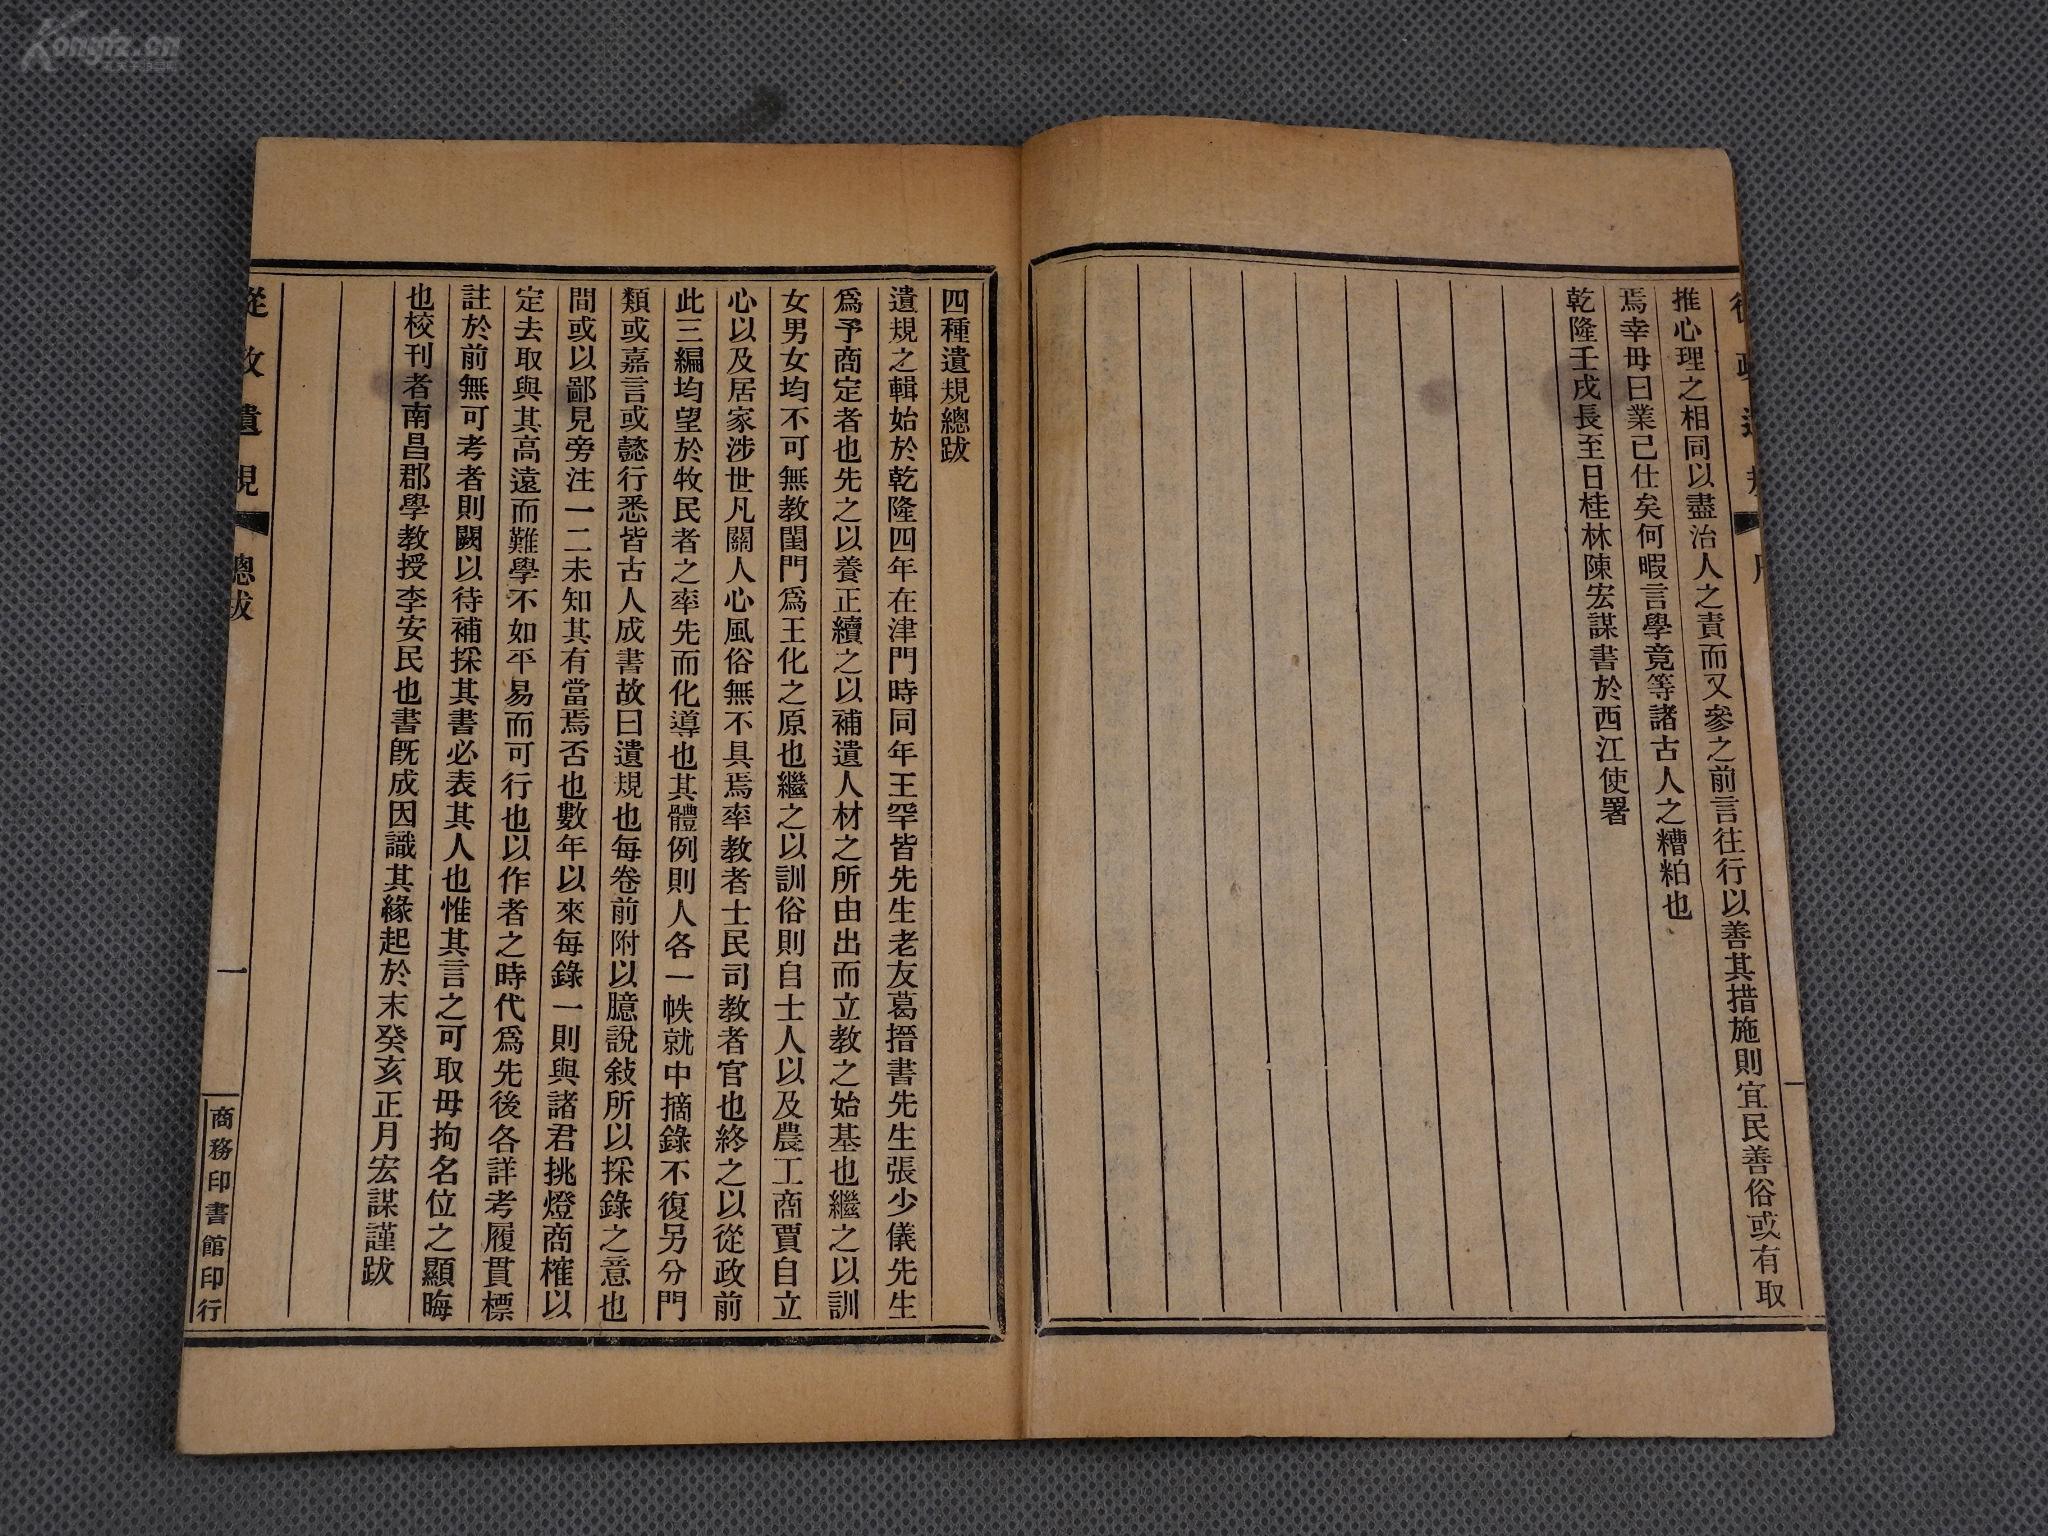 Kongfz.cn
推心理之相同以盡治人之責而又參之前言往行以善其措施則宜民善俗或有取
焉幸毋曰業已仕矣何暇言學竟等諸古人之糟粕也
乾隆壬戌長至日桂林陳宏謀書於西江使署
四種遺規總跋
遺規之輯始於乾隆四年在津門時同年王罕皆先生老友葛搢書先生張少儀先生
爲予商定者也先之以養正續之以補遺人材之所由出而立教之始基也繼之以訓
女男女均不可無教閨門爲王化之原也繼之以訓俗則自士人以及農工商賈自立
心以及居家涉世凡關人心風俗無不具焉率教者士民司教者官也終之以從政前
此三編均望於牧民者之率先而化導也其體例則人各一帙就中摘錄不復另分門
類或嘉言或懿行悉皆古人成書故曰遺規也每卷前附以臆說敍所以採錄之意也
間或以鄙見旁注一二未知其有當焉否也數年以來每錄一則與諸君挑燈商榷以
定去取與其高遠而難學不如平易而可行也以作者之時代爲先後各詳考履貫標
註於前無可考者則闕以待補採其書必表其人也惟其言之可取毋拘名位之顯晦
也校刊者南昌郡學教授李安民也書既成因識其緣起於末癸亥正月宏謀謹跋
從政遺規
總跋
一
商務印書館印行